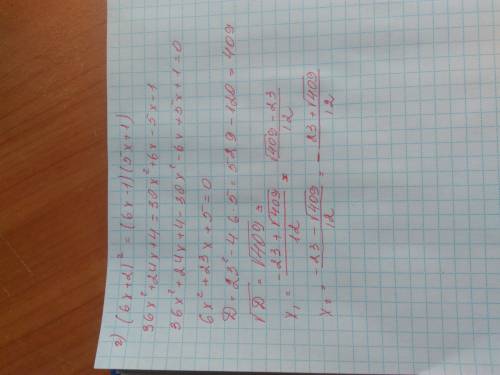 2) (6x+2)² = (6x-1)(5x+1)
36x²+24x+4=30x²+6x-5x-1
36x²+24x+4-30x²-6x+5x+1=0
6x²+23x+5=0
D=23²-4·6·5=529-120=409
√D=√409
x₁ = (-23+√409)/12 = (√409-23)/12
x₂ = (-23-√409)/12 = -(23+√409)/12